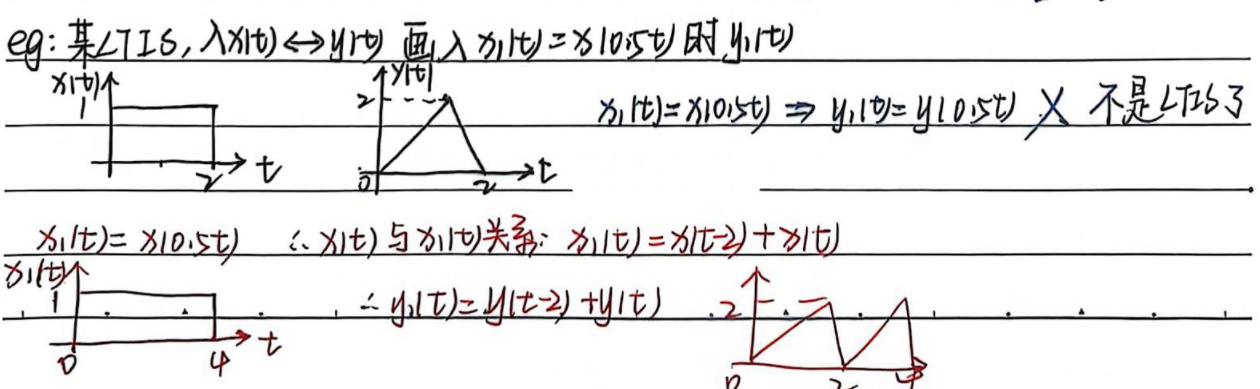 eg: 某LTIS, 入x(t)↔y(t) 画入 x₁(t)=x(0.5t)时 y₁(t)
x(t) 1 2 t
y(t) 2 0 2 t
x₁(t)=x(0.5t) ⇒ y₁(t)=y(0.5t) X 不是LTIS了
x₁(t)=x(0.5t) ∴x(t)与x₁(t)关系: x₁(t)=x(t-2)+x(t)
x₁(t) 1 0 4 t
∴y₁(t)=y(t-2)+y(t)
2 0 2 4